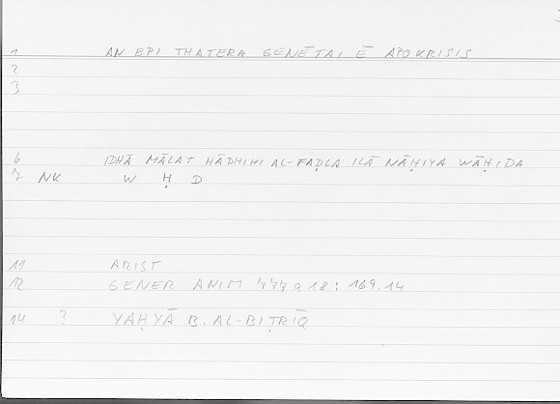 1 AN EPI THATERA GENĒTAI Ē APOKRISIS
2
3
6 IDHĀ MĀLAT HĀDHIHI AL-FAḌLA ILĀ NĀḤIYA WĀḤIDA
7 NK W Ḥ D
11 ARIST
12 GENER ANIM 777 a 18 : 169,14
14 ? YAḤYĀ B. AL-BIṬRĪQ